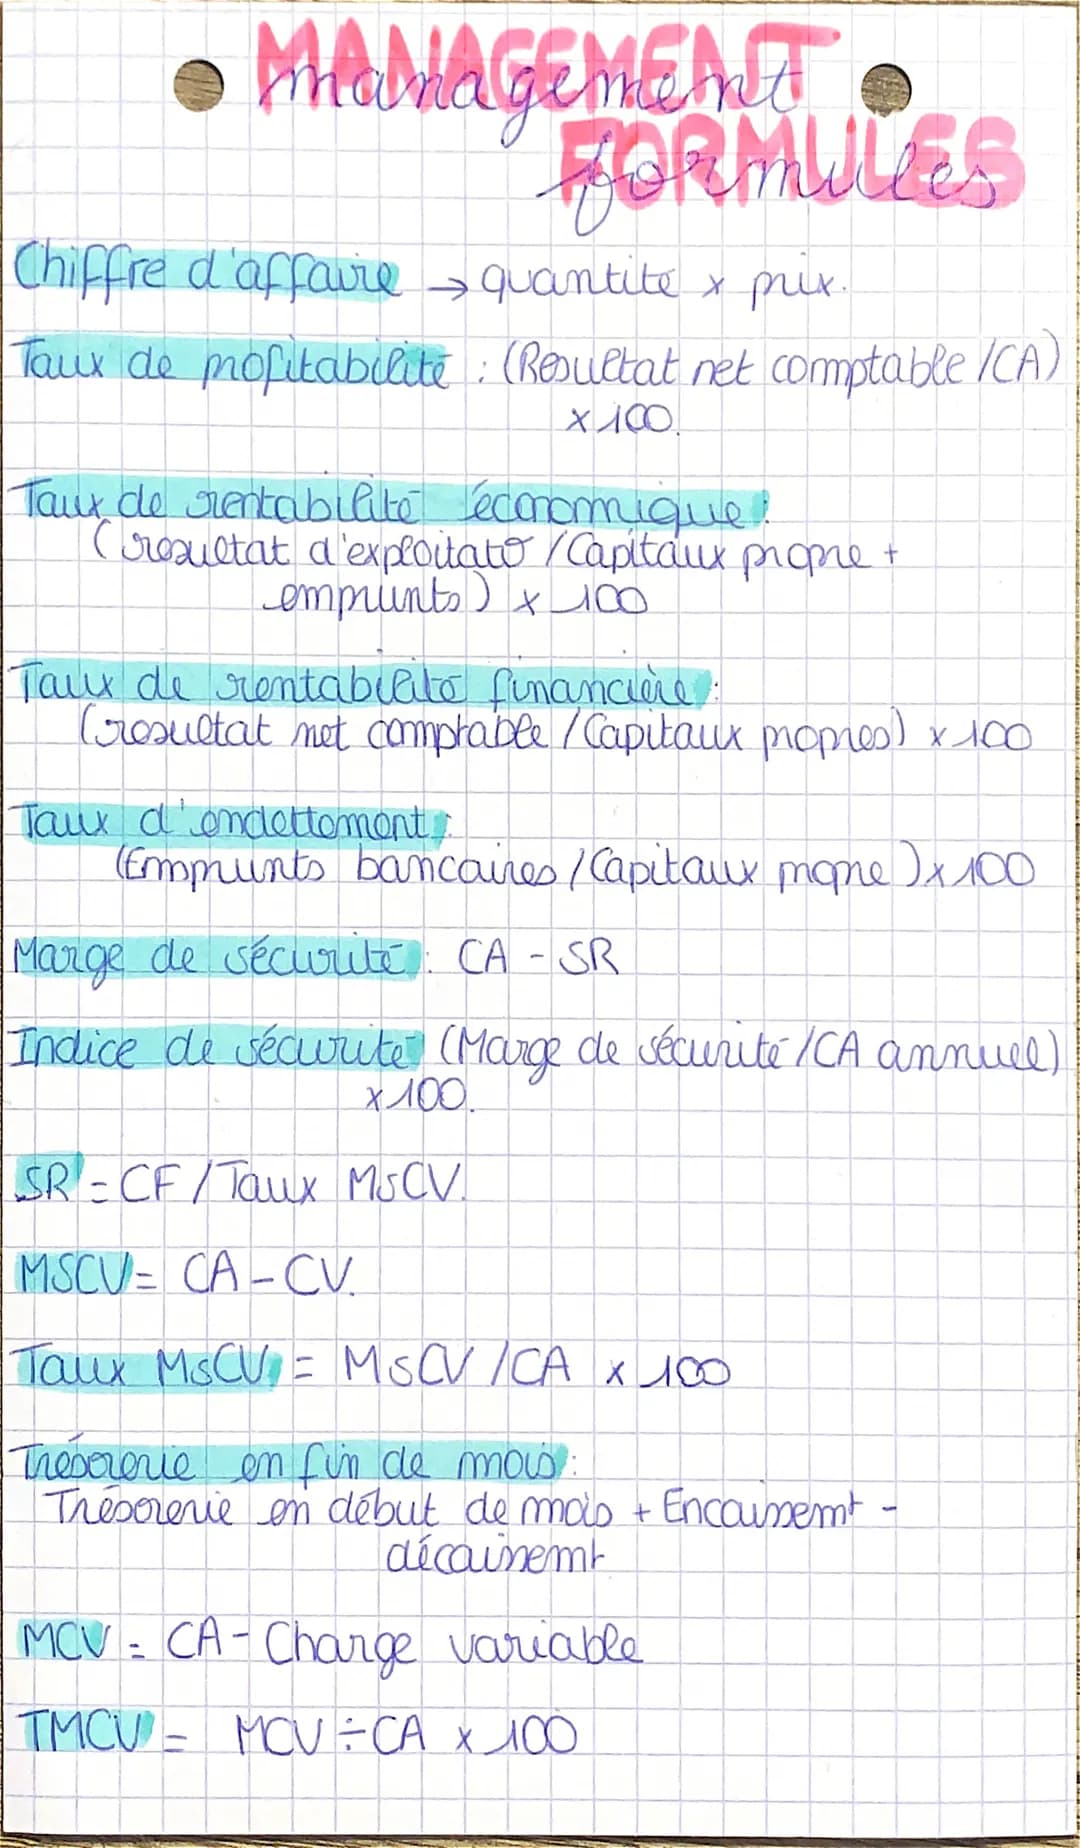 MANAGEMENT
management
FORMULES
formules
Chiffre d'affaire → quantité x prix.
Taux de profitabilité : (Résultat net comptable / CA)
x 100.
Taux de rentabilité économique :
(résultat d'exploitat° / Capitaux propre +
emprunts) x 100
Taux de rentabilité financière :
(résultat net comptable / Capitaux propres) x 100
Taux d'endettement :
(Emprunts bancaires / Capitaux propre) x 100
Marge de sécurité : CA - SR
Indice de sécurité (Marge de sécurité / CA annuel)
x 100.
SR = CF / Taux MsCV.
MSCV = CA - CV.
Taux MsCV = MsCV / CA x 100
Trésorerie en fin de mois :
Trésorerie en début de mois + Encaissemt -
décaissemt
MCV = CA - Charge variable
TMCV = MCV ÷ CA x 100